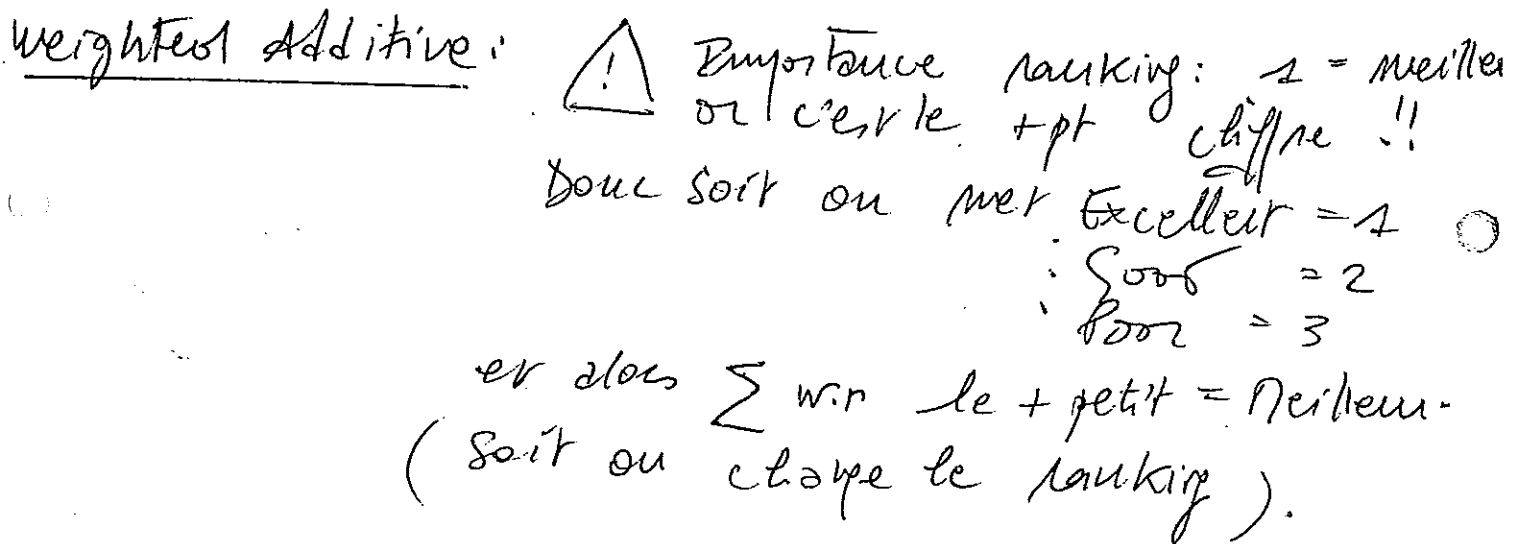 Weighted Additive: ! Importance ranking: 1 = meilleu
or c'est le + pt chiffre !!
Donc soit on met Excellent = 1
: Good = 2
: Poor = 3
et alors ∑ w.r le + petit = Meilleur.
( Soit on change le ranking ).